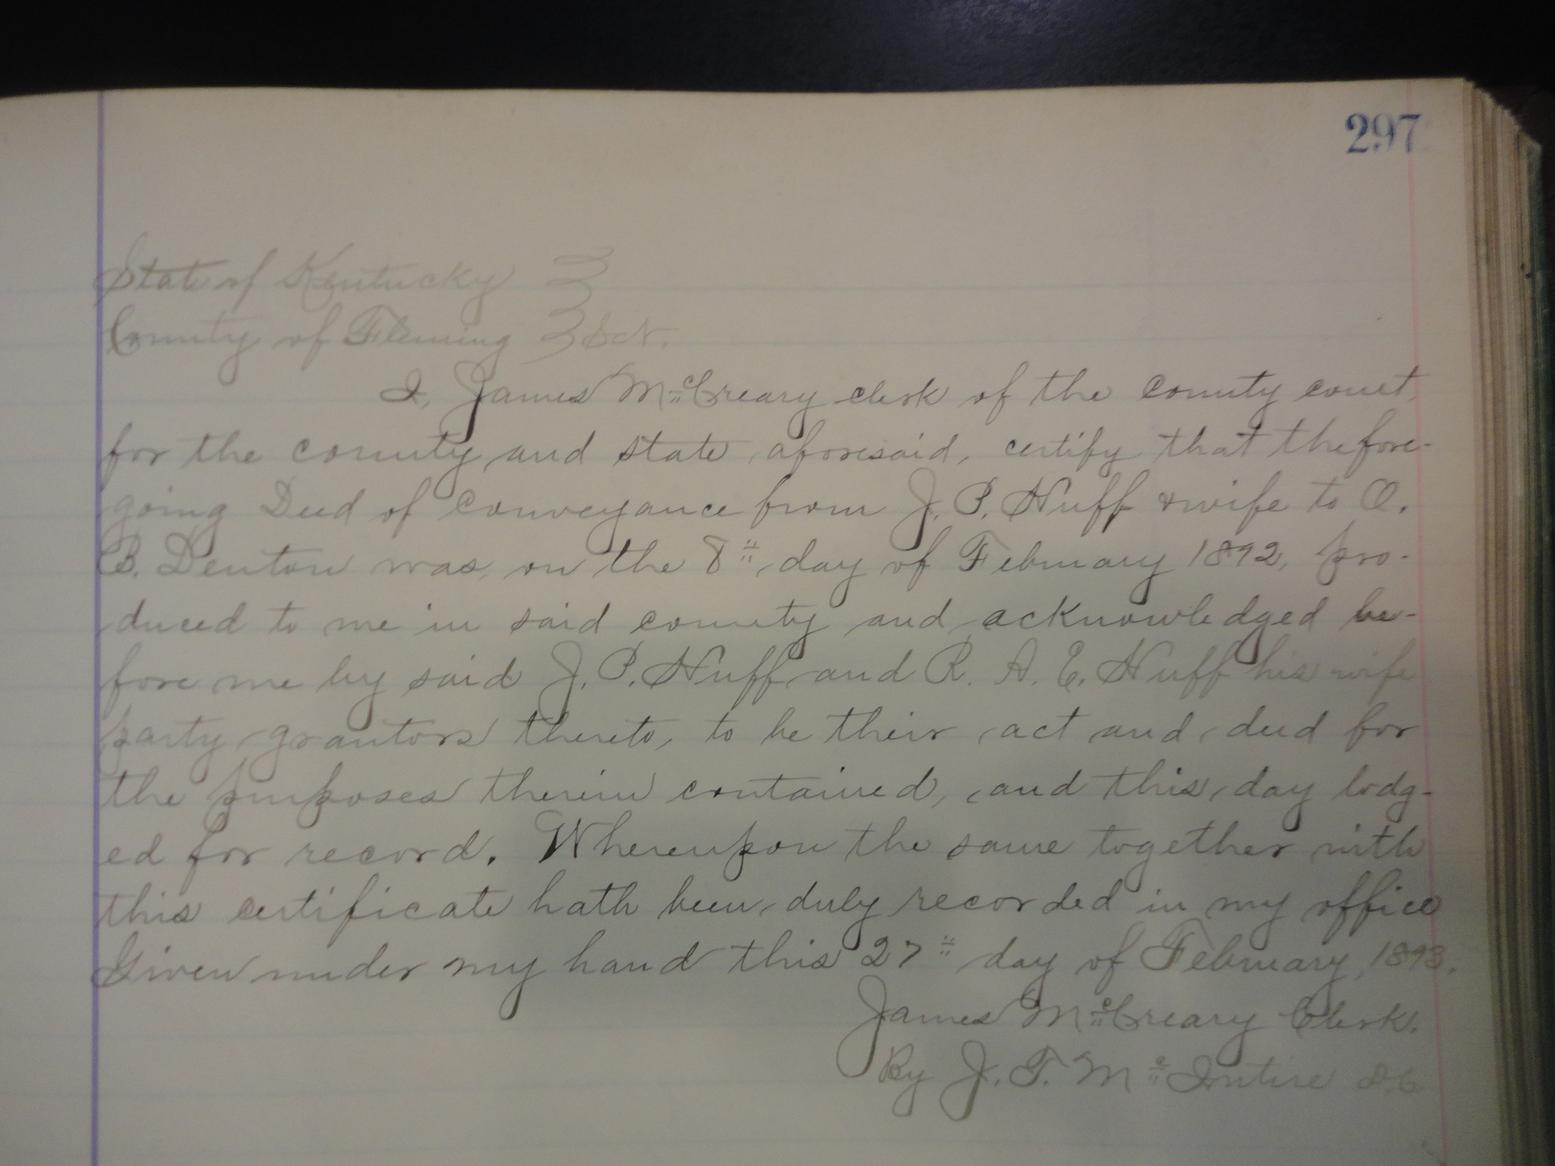 297
State of Kentucky }
County of Fleming } Sct.
I, James McCreary clerk of the county court,
for the county and state aforesaid, certify that the fore-
going Deed of conveyance from J. P. Huff & wife to O.
B. Denton was, on the 8th day of February 1892, pro-
duced to me in said county and acknowledged be-
fore me by said J. P. Huff and R. A. E. Huff his wife
party grantors thereto, to be their act and deed for
the purposes therein contained, and this day lodg-
ed for record. Whereupon the same together with
this certificate hath been duly recorded in my office
Given under my hand this 27th day of February, 1893.
James McCreary Clerk.
By J. T. McIntire D.C.